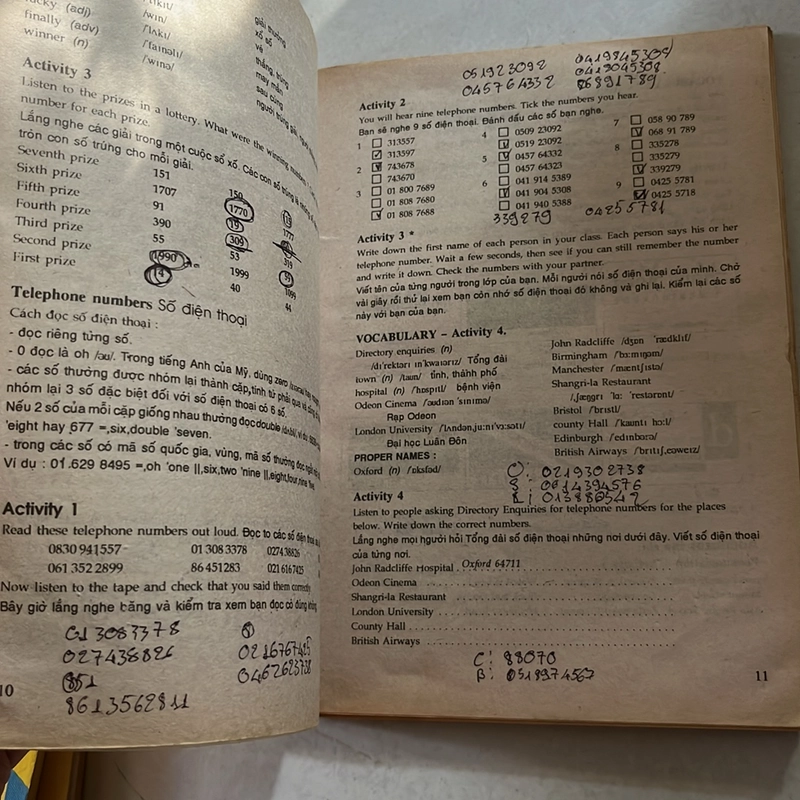 (adj)
finally (adv)
winner (n)
/wɪn/
/ˈlʌkɪ/
/ˈfaɪnəlɪ/
/ˈwɪnə/
giải thưởng
xổ số
vé
thắng, trúng
may mắn
sau cùng
Activity 3
Listen to the prizes in a lottery. What were the winning
number for each prize.
Lắng nghe các giải trong một cuộc sổ xố. Các con số trúng
tròn con số trúng cho mỗi giải.
Seventh prize 151 150
Sixth prize 1707 1770 1777
Fifth prize 91 19
Fourth prize 390 309 319
Third prize 55 53
Second prize 1990 1999 1099
First prize 14 40 44
Telephone numbers Số điện thoại
Cách đọc số điện thoại :
- đọc riêng từng số.
- 0 đọc là oh /əʊ/. Trong tiếng Anh của Mỹ, dùng zero
- các số thường được nhóm lại thành cặp, tính từ phải qua
nhóm lại 3 số đặc biệt đối với số điện thoại có 6 số.
Nếu 2 số của mỗi cặp giống nhau thường đọc double
'eight hay 677 =,six,double 'seven.
- trong các số có mã số quốc gia, vùng, mã số thường đọc
Ví dụ : 01.629 8495 =,oh 'one ||,six,two 'nine ||,eight,four,nine five
Activity 1
Read these telephone numbers out loud. Đọc to các số điện thoại
0830 941557 01 308 3378 0274 38826
061 352 2899 86 451283 021 616 7425
Now listen to the tape and check that you said them correctly
Bây giờ lắng nghe băng và kiểm tra xem bạn đọc có đúng không
01 3083378
027438826 0216767425
851 0462623738
8613562811
10
051923092 0419845308
045764332 0413045308
06891789
Activity 2
You will hear nine telephone numbers. Tick the numbers you hear.
Bạn sẽ nghe 9 số điện thoại. Đánh dấu các số bạn nghe.
1 313557 4 0509 23092 7 058 90 789
313597 0519 23092 068 91 789
2 743678 5 0457 64332 8 335278
743670 0457 64323 335279
3 01 800 7689 6 041 914 5389 339279
01 808 7680 041 904 5308 9 0425 5781
01 808 7688 041 940 5388 0425 5718
339279 04255781
Activity 3 *
Write down the first name of each person in your class. Each person says his or her
telephone number. Wait a few seconds, then see if you can still remember the number
and write it down. Check the numbers with your partner.
Viết tên của từng người trong lớp của bạn. Mỗi người nói số điện thoại của mình. Chờ
vài giây rồi thử lại xem bạn còn nhớ số điện thoại đó không và ghi lại. Kiểm lại các số
này với bạn của bạn.
VOCABULARY – Activity 4.
Directory enquiries (n)
/dɪˈrektərɪ ɪnˈkwaɪərɪz/ Tổng đài
town (n) /taun/ tỉnh, thành phố
hospital (n) /ˈhɒspɪtl/ bệnh viện
Odeon Cinema /ˈəʊdɪən ˈsɪnɪmə/
Rạp Odeon
London University /ˈlʌndən,ju:nɪˈvɜ:sətɪ/
Đại học Luân Đôn
PROPER NAMES :
Oxford (n) /ˈɒksfəd/
John Radcliffe /dʒɒn ˈrædklɪf/
Birmingham /ˈbɜ:mɪŋəm/
Manchester /ˈmæntʃɪstə/
Shangri-la Restaurant
/,ʃæŋgrɪ ˈlɑ: ˈrestərɒnt/
Bristol /ˈbrɪstl/
county Hall /ˈkaʊntɪ hɔ:l/
Edinburgh /ˈedɪnbərə/
British Airways /ˈbrɪtɪʃ,eəweɪz/
O: 0219302738
S: 0614394576
L: 013880542
Activity 4
Listen to people asking Directory Enquiries for telephone numbers for the places
below. Write down the correct numbers.
Lắng nghe mọi người hỏi Tổng đài số điện thoại những nơi dưới đây. Viết số điện thoại
của từng nơi.
John Radcliffe Hospital Oxford 64711
Odeon Cinema
Shangri-la Restaurant
London University
County Hall
British Airways
C: 88070
B: 0518974567
11